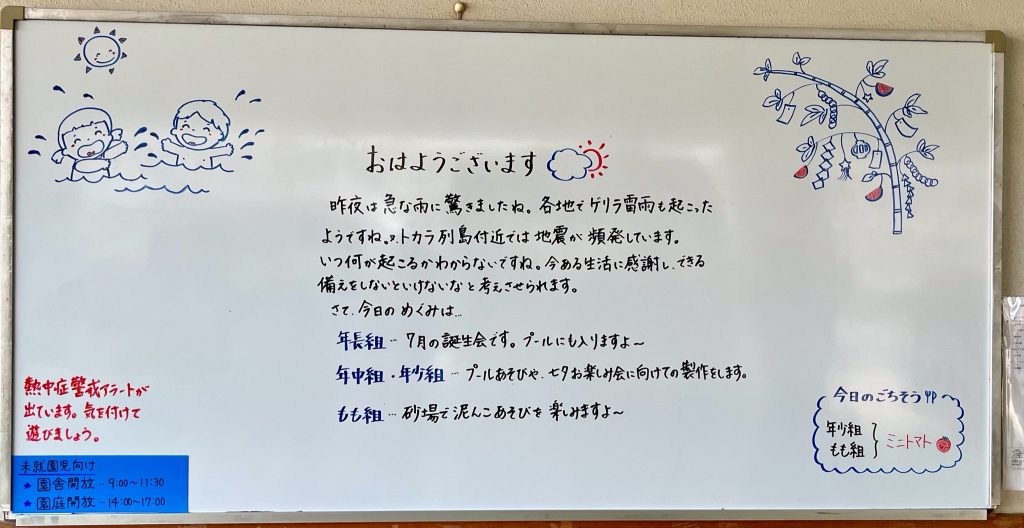 おはようございます
昨夜は急な雨に驚きましたね。各地でゲリラ雷雨も起こった
ようですね。トカラ列島付近では地震が頻発しています。
いつ何が起こるかわからないですね。今ある生活に感謝し、できる
備えをしないといけないなと考えさせられます。
さて、今日のめぐみは…
年長組…7月の誕生会です。プールにも入りますよ～
年中組・年少組…プールあそびや、七夕お楽しみ会に向けての製作をします。
もも組…砂場で泥んこあそびを楽しみますよ～
熱中症警戒アラートが
出ています。気を付けて
遊びましょう。
未就園児向け
★園舎開放…9:00～11:30
★園庭開放…14:00～17:00
今日のごちそう
年少組
もも組
ミニトマト